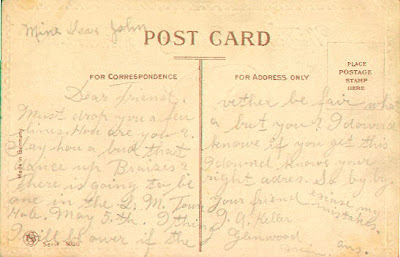 Mine Dear John
POST CARD
FOR CORRESPONDENCE
FOR ADDRESS ONLY
PLACE
POSTAGE
STAMP
HERE
Made in Germany
Dear Friend.
Must drop you a few
lines. How are you?
Say hou a bud that
dance up Braises?
there is going to be
one in the L. M. Town
Hole May 5.th. I thing
I will be over if the
Serie
wether be fair what
a but you? I downd
knowe if you get this
I downd knows your
right adres. So by by
your friend
mistakes.
J. A. Keller
Glenwood
ans.